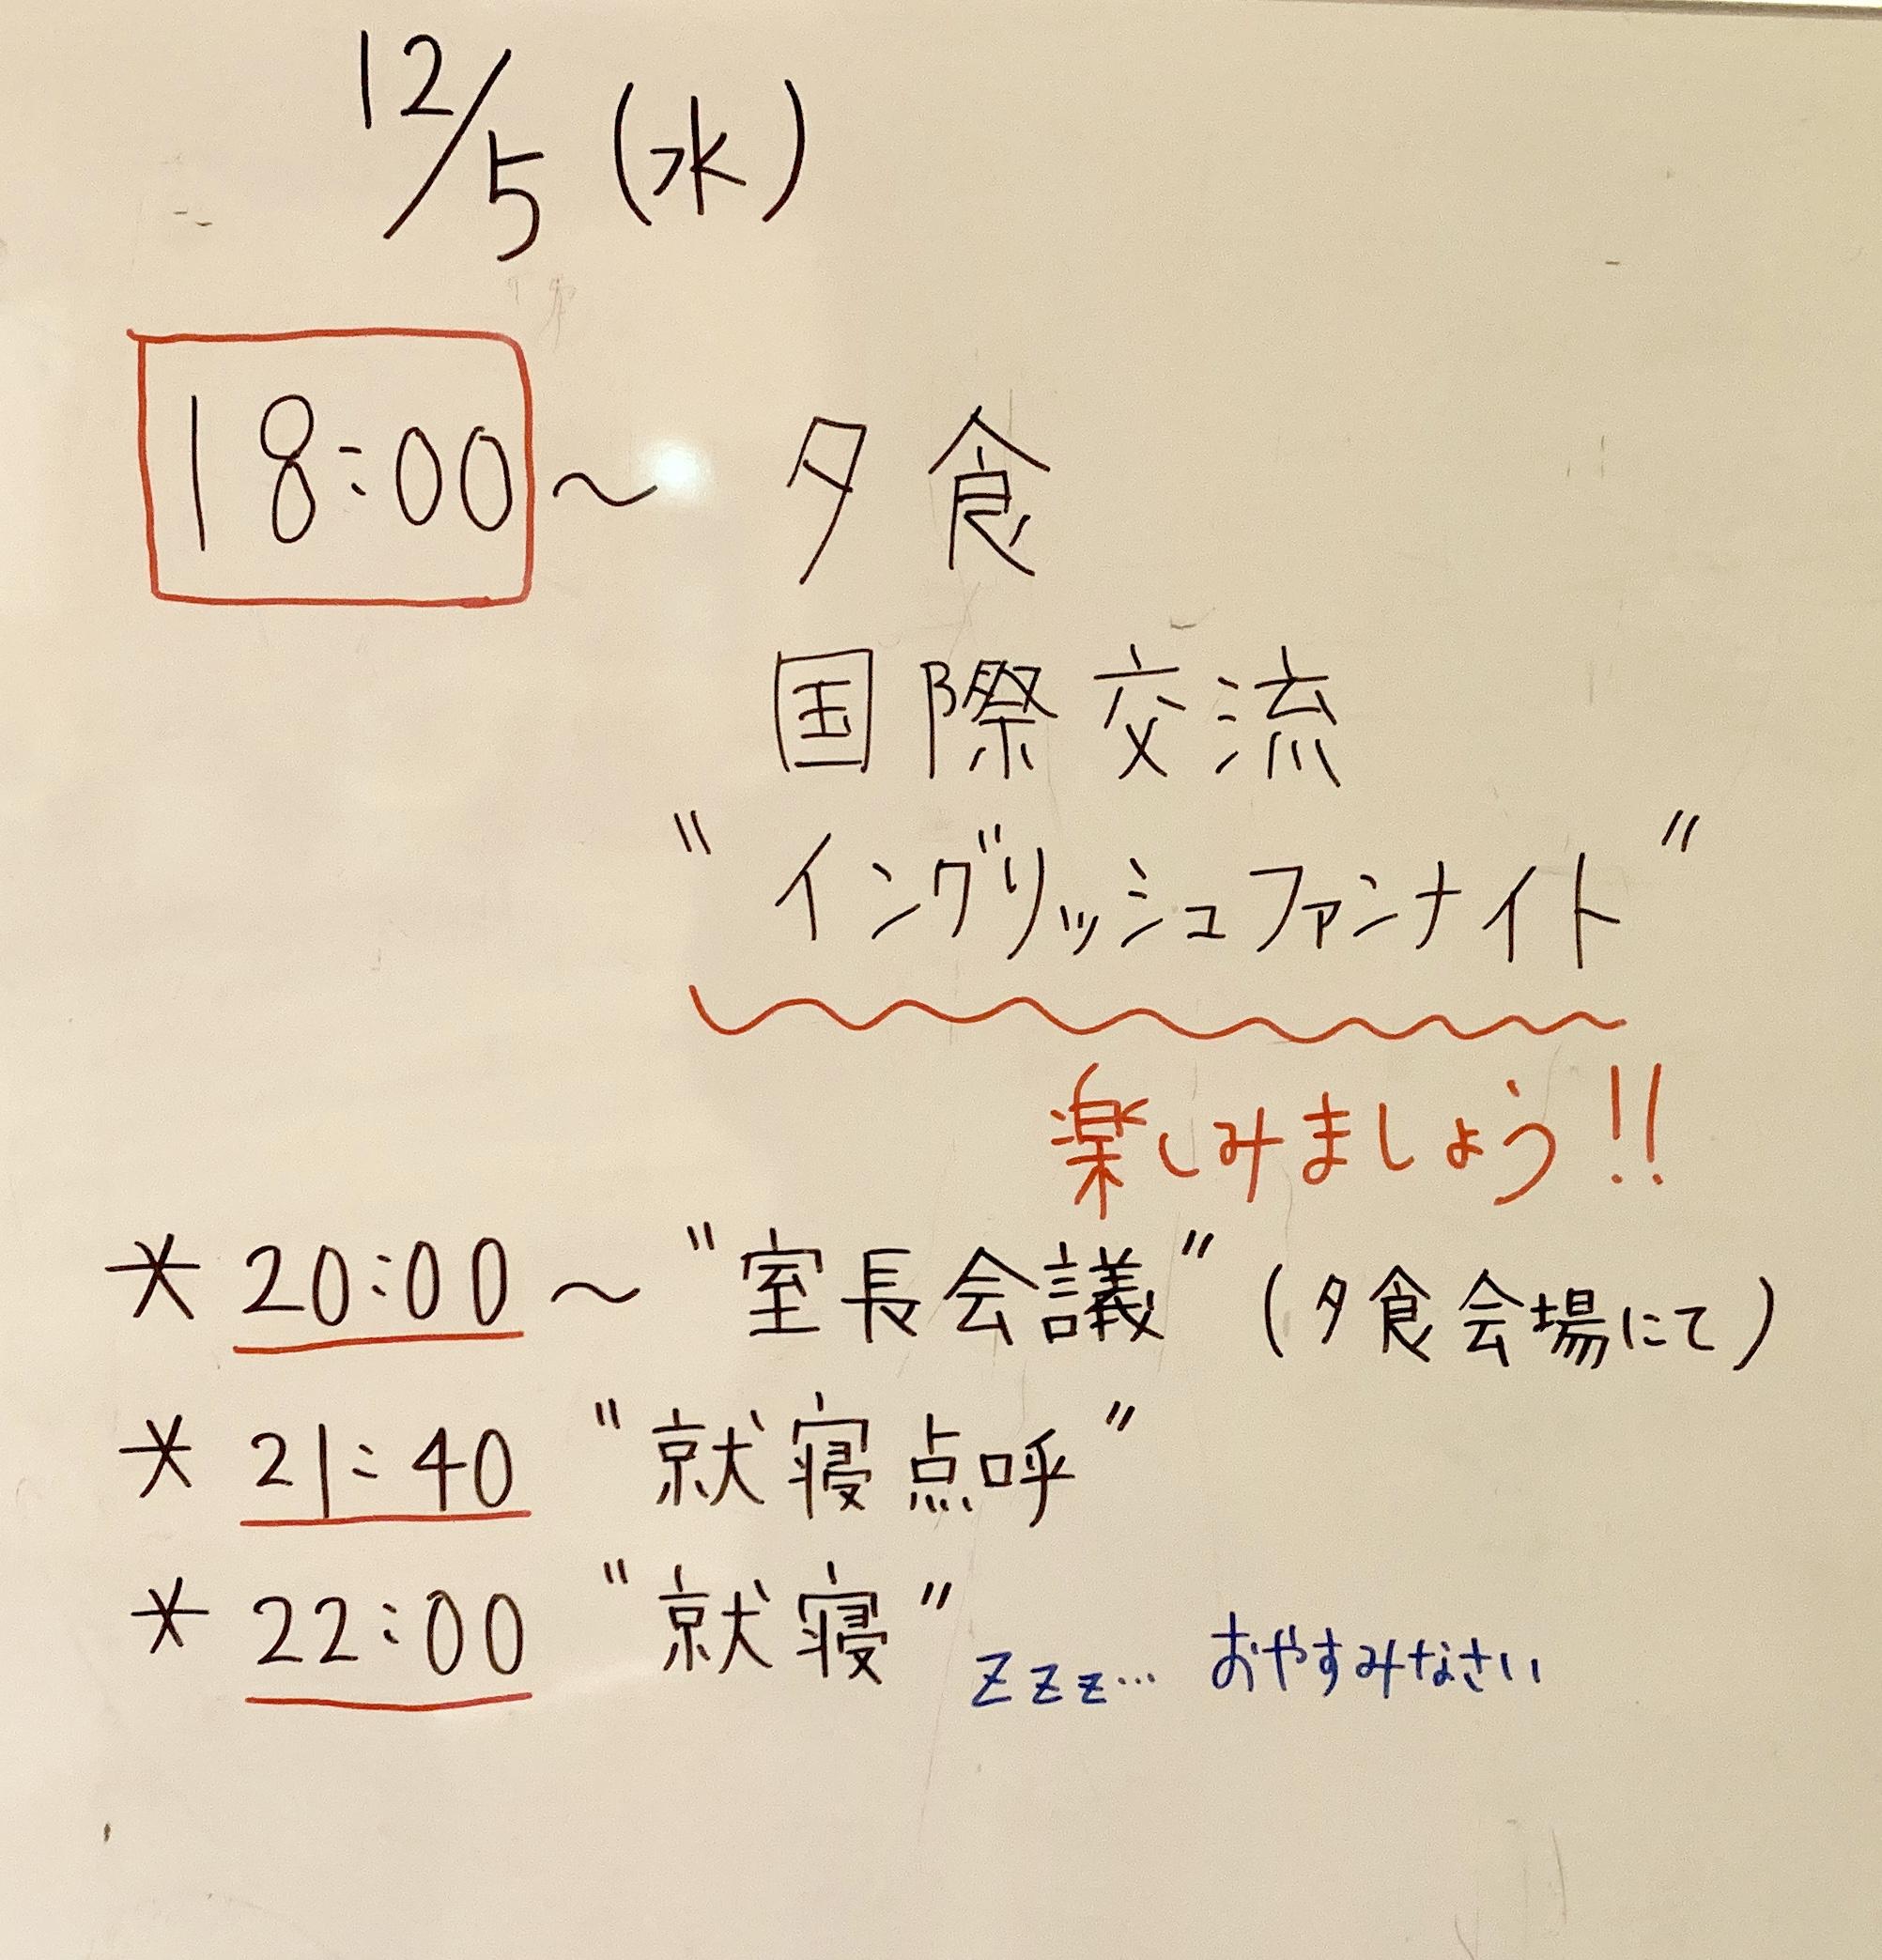 12/5(水)
18:00〜 夕食
国際交流
"イングリッシュファンナイト"
楽しみましょう!!
* 20:00〜"室長会議"(夕食会場にて)
* 21:40 "就寝点呼"
* 22:00 "就寝" zzz… おやすみなさい